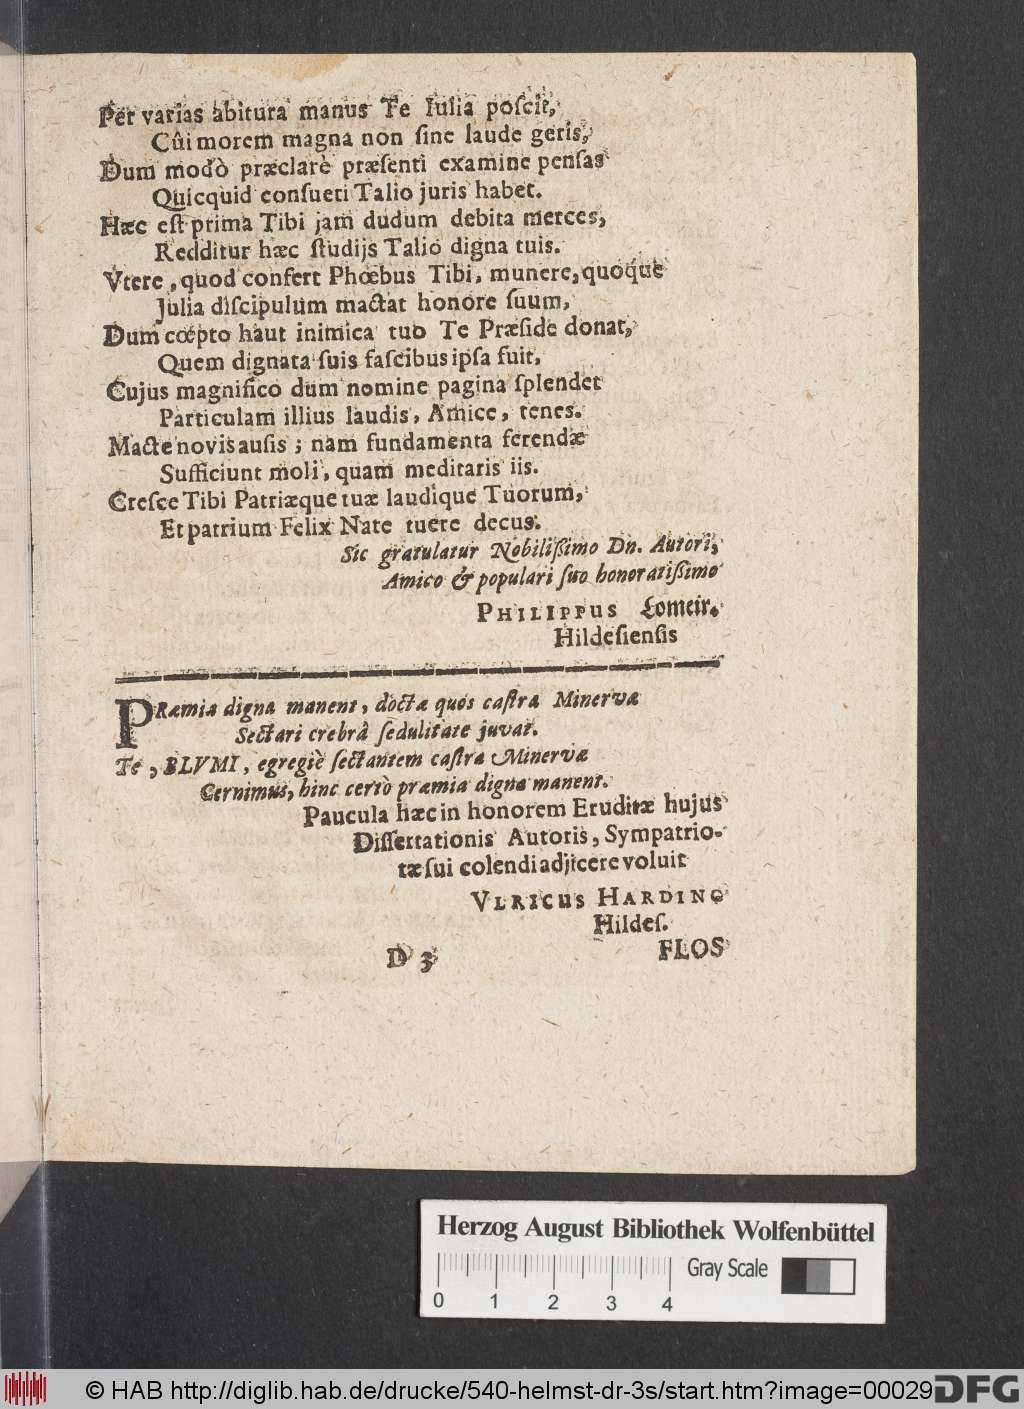 Per varias abitura manus Te Iulia poscit,
Cûi morem magna non sine laude geris,
Dum modò præclarè præsenti examine pensas
Quicquid consueti Talio juris habet.
Hæc est prima Tibi jam dudum debita merces,
Redditur hæc studijs Talio digna tuis.
Vtere, quod confert Phœbus Tibi, munere, quoque
Julia discipulum mactat honore suum,
Dum cœpto haut inimica tuo Te Præside donat,
Quem dignata suis fascibus ipsa fuit.
Cujus magnifico dum nomine pagina splendet
Particulam illius laudis, Amice, tenes.
Macte novis ausis; nam fundamenta ferendæ
Sufficiunt moli, quam meditaris iis.
Cresce Tibi Patriæque tuæ laudique Tuorum,
Et patrium Felix Nate tuere decus.
Sic gratulatur Nobilissimo Dn. Autori,
Amico & populari suo honoratissimo
PHILIPPUS Lomeir.
Hildesiensis
PRæmia digna manent, doctæ quos castra Minervæ
Sectari crebrâ sedulitate juvat.
Te, BLVMI, egregiè sectantem castra Minervæ
Cernimus, hinc certò præmia digna manent.
Paucula hæc in honorem Eruditæ hujus
Dissertationis Autoris, Sympatrio-
tæ sui colendi adjicere voluit
VLRICUS HARDING
Hildes.
D 3 FLOS
Herzog August Bibliothek Wolfenbüttel
Gray Scale
0 1 2 3 4
© HAB http://diglib.hab.de/drucke/540-helmst-dr-3s/start.htm?image=00029
DFG